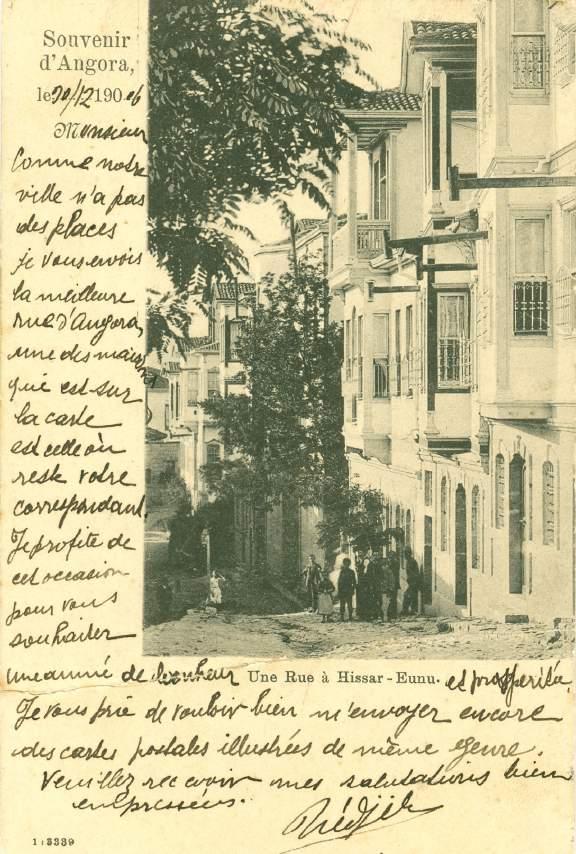 Souvenir
d'Angora,
le 30/12 1906
Monsieur
Comme notre
ville n'a pas
des places
je vous envois
la meilleure
rue d'Angora,
une des maisons
qui est sur
la carte
est celle où
reste votre
correspondant.
Je profite de
cet occasion
pour vous
souhaiter
une année de bonheur
Une Rue à Hissar-Eunu.
et prosperité.
Je vous prie de vouloir bien m'envoyer encore
des cartes postales illustrées de même genre.
Veuillez recevoir mes salutations bien
empressées.
1:3339